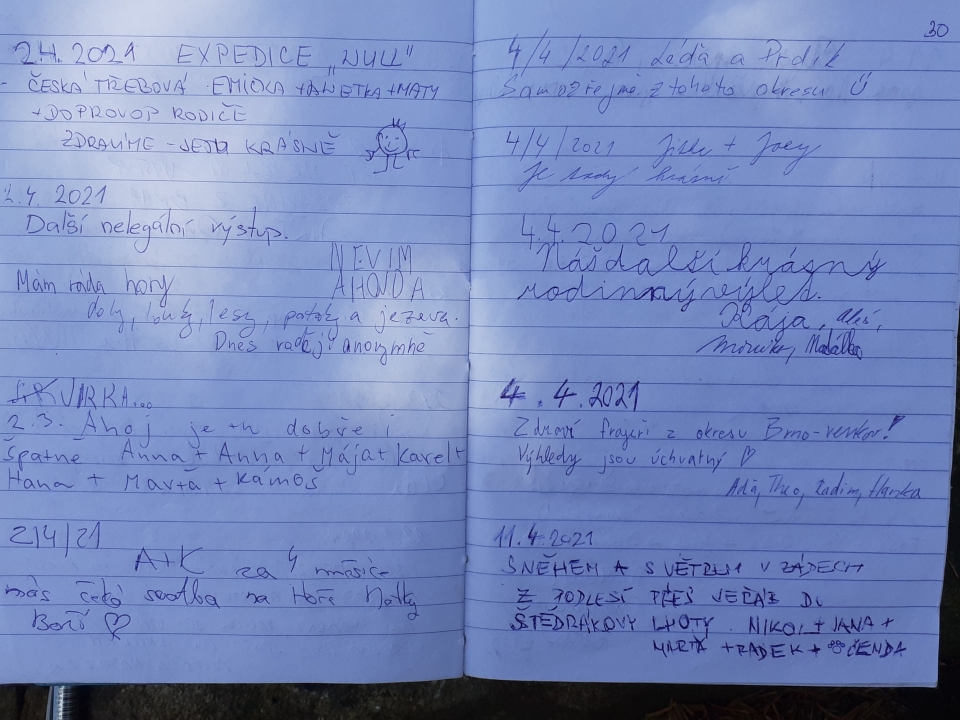 2.4. 2021 EXPEDICE „NULL"
- ČESKÁ TŘEBOVÁ EMIČKA + ANETKA + MATY
+ DOPROVOD RODIČE
ZDRAVÍME - JE TU KRÁSNĚ
2.4. 2021
Další nelegální výstup.
NEVIM
AHOJDA
Mám ráda hory
doly, louky, lesy, potoky a jezera.
Dnes raději anonymně
VIRKA...
2.3. Ahoj je tu dobře i
Špatně Anna + Anna + Mája + Karel +
Hana + Marta + Kámoš
2/4/21
A+K za 4 měsíce
nás čeká svatba na Hoře Matky
Boží ♡
30
4/4/2021 Léďa a Prdík
Samozřejmě z tohoto okresu Ü
4/4/2021 + Joey
Je tady krásně
4.4.2021
Náš další krásný
rodinný výlet.
Kája, Aleš,
4. 4. 2021
Zdraví frajeři z okresu Brno-venkov!
Výhledy jsou úchvatný ♡
Theo, Radim, Hanka
11.4.2021
SNĚHEM A S VĚTREM V ZÁDECH
Z PODLESÍ PŘES DO
ŠTĚDRÁKOVY LHOTY. NIKOL + JANA +
MARŤA + RADEK + ČENDA